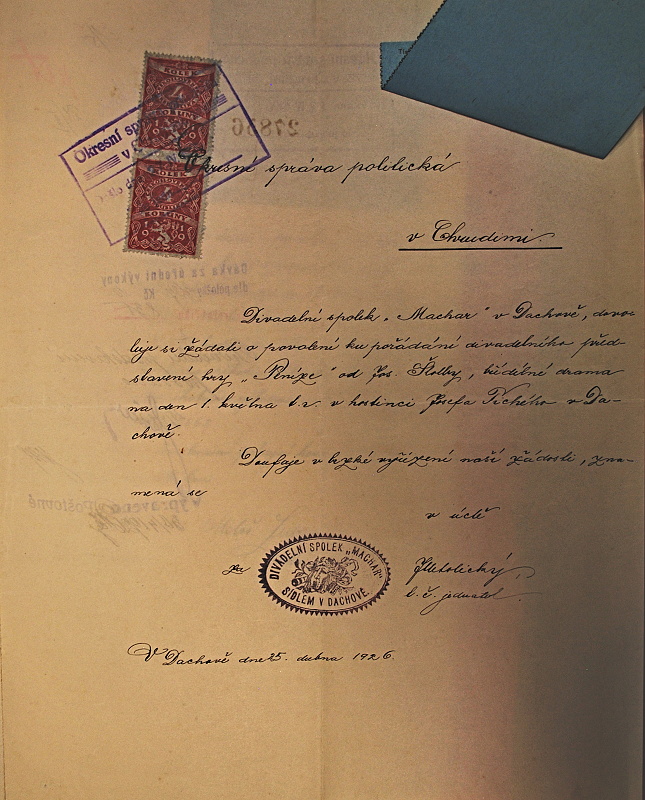 KOLEK
4
KORUNY
Okresní
v
KOLEK
4
KORUNY
27836
Okresní správa politická
v Chrudimi.
Dávka za úřední výkony
dle položky
Kč
Divadelní spolek „Machar" v Dachově, dovo-
luje si žádati o povolení ku pořádání divadelního před-
stavení hry „Peníze" od Jos. Štolby, třídílné drama
na den 1. května t.r. v hostinci Josefa Tichého v Da-
chově.
Doufaje v brzké vyřízení naší žádosti, zna-
mená se
v úctě
za
DIVADELNÍ SPOLEK „MACHAR"
SÍDLEM V DACHOVĚ.
t.č. jednatel.
V Dachově dne 25. dubna 1926.